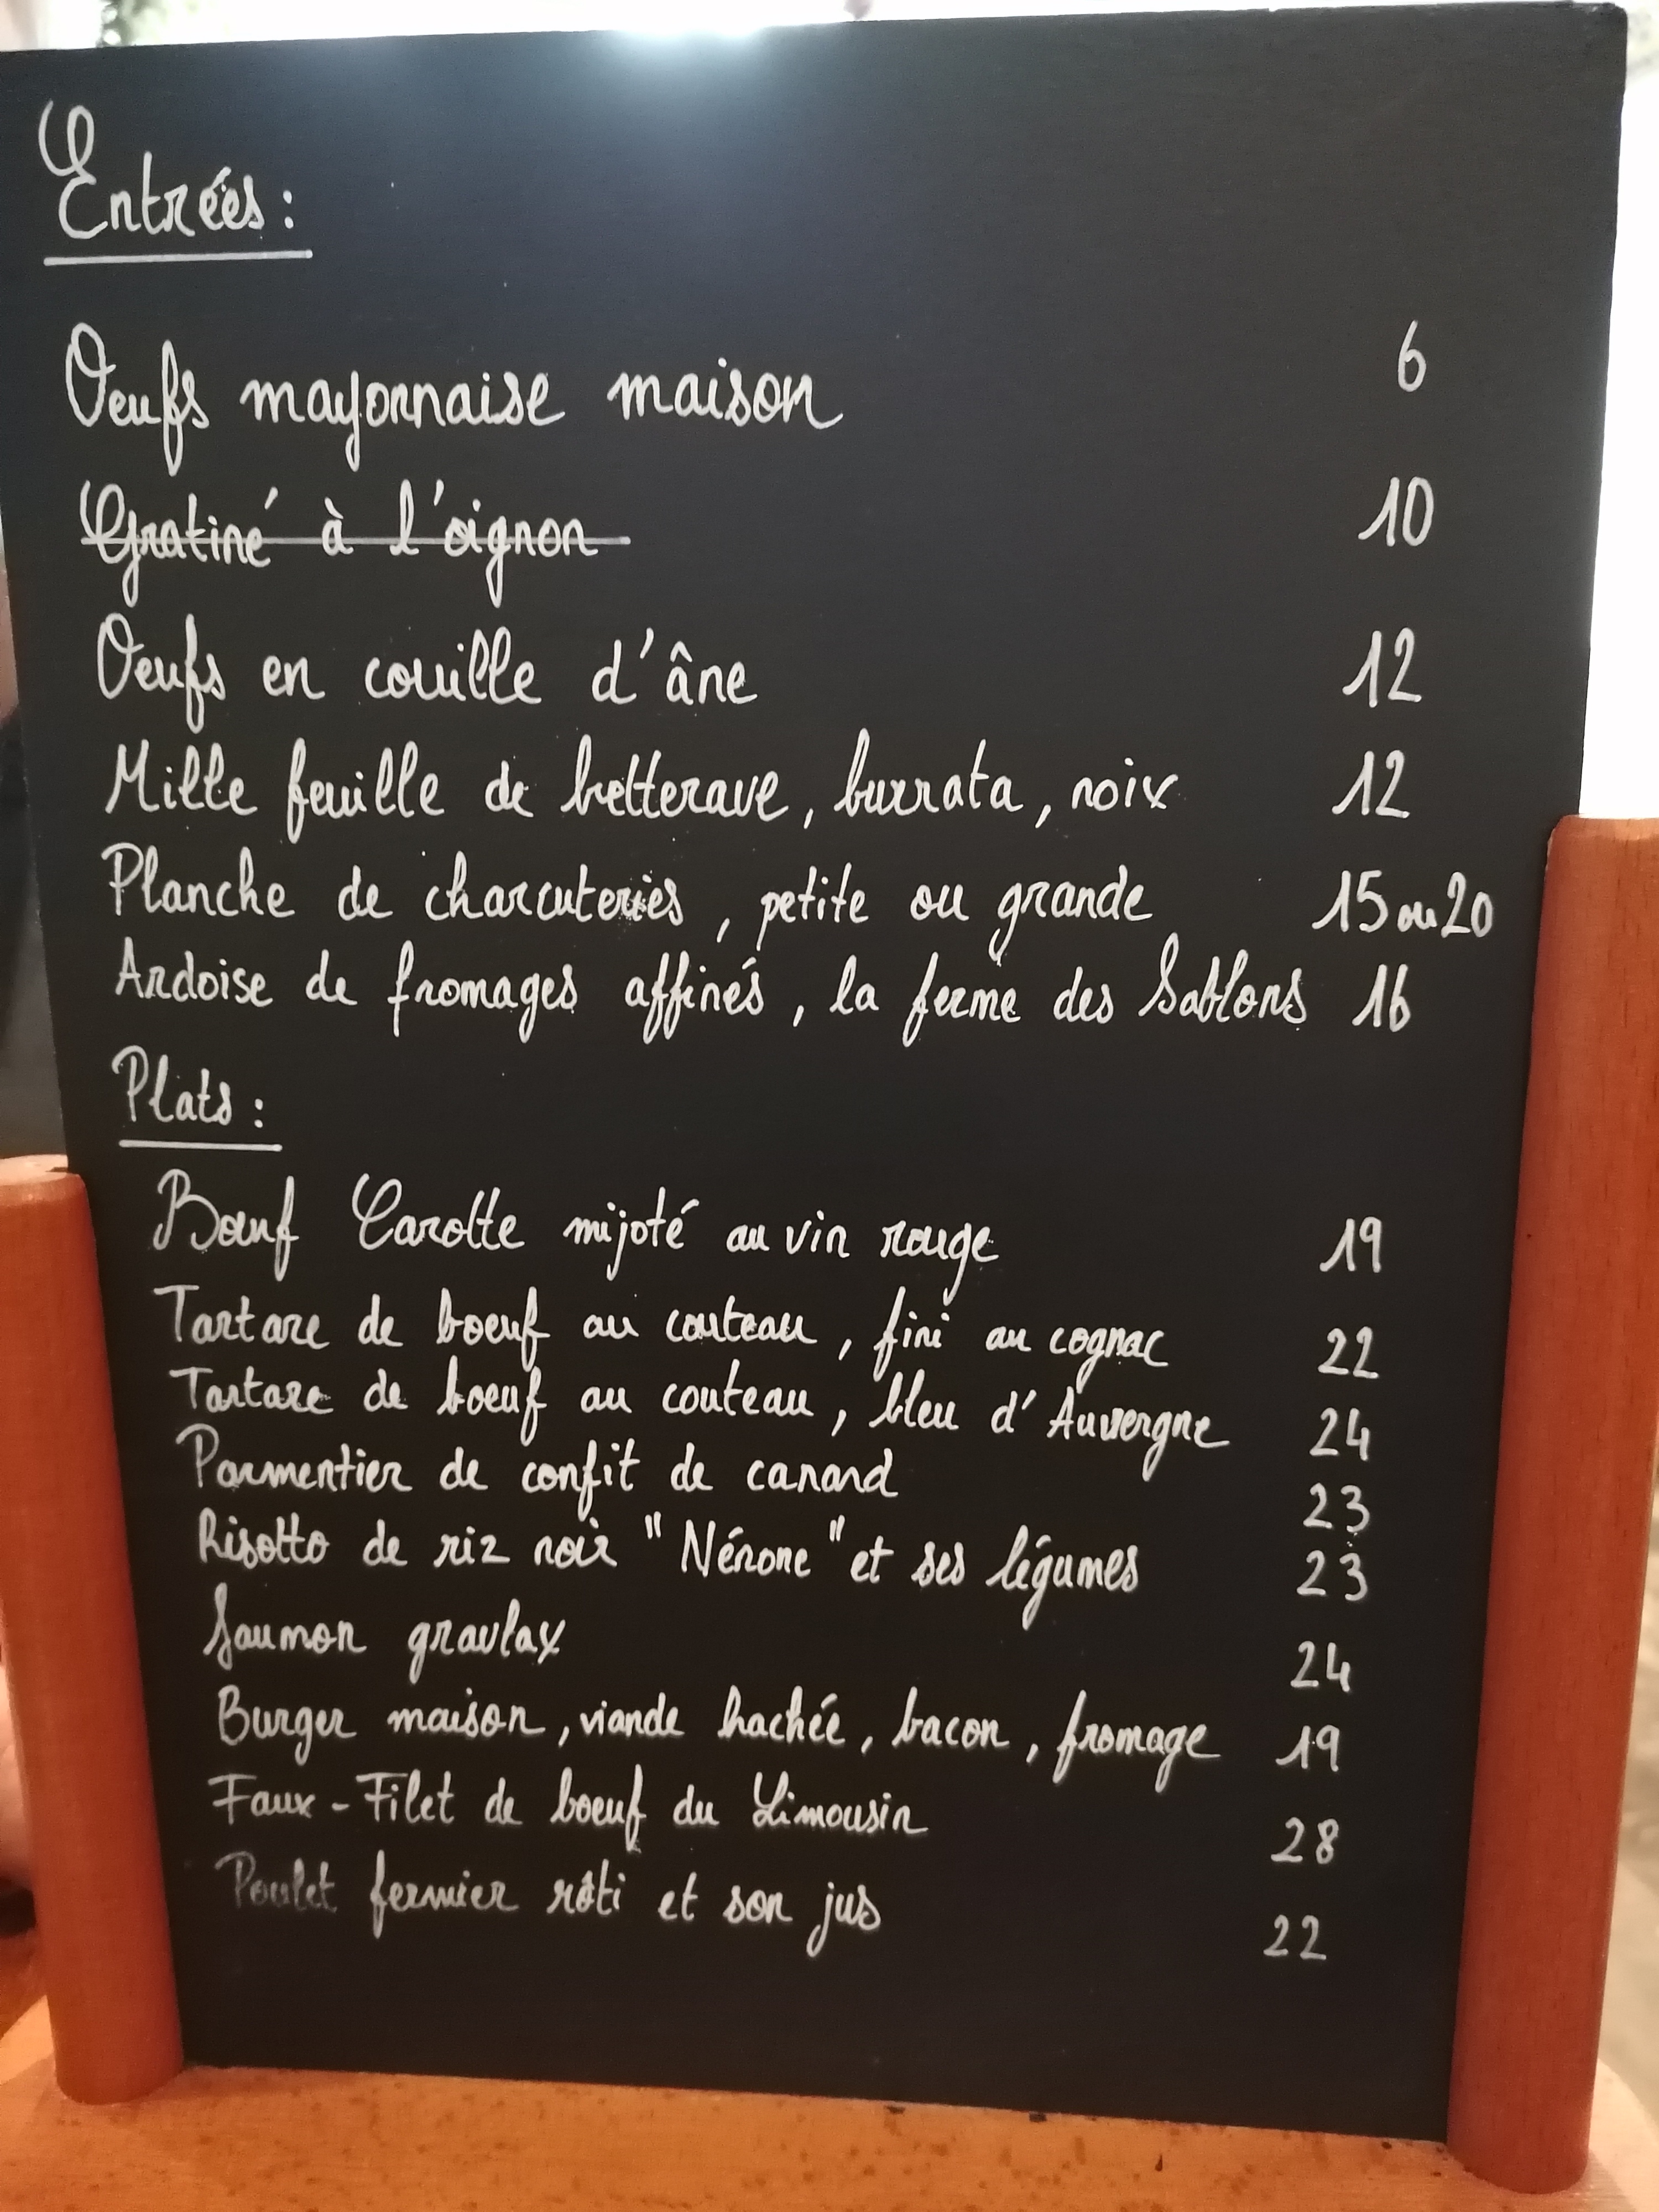 Entrées :
Oeufs mayonnaise maison 6
Gratiné à l'oignon 10
Oeufs en couille d'âne 12
Mille feuille de betterave, burrata, noix 12
Planche de charcuteries, petite ou grande 15 ou 20
Ardoise de fromages affinés, la ferme des Sablons 16
Plats :
Bœuf Carotte mijoté au vin rouge 19
Tartare de boeuf au couteau, fini au cognac 22
Tartare de boeuf au couteau, bleu d'Auvergne 24
Parmentier de confit de canard 23
Risotto de riz noir "Nérone" et ses légumes 23
Saumon gravlax 24
Burger maison, viande hachée, bacon, fromage 19
Faux-Filet de boeuf du Limousin 28
Poulet fermier rôti et son jus 22